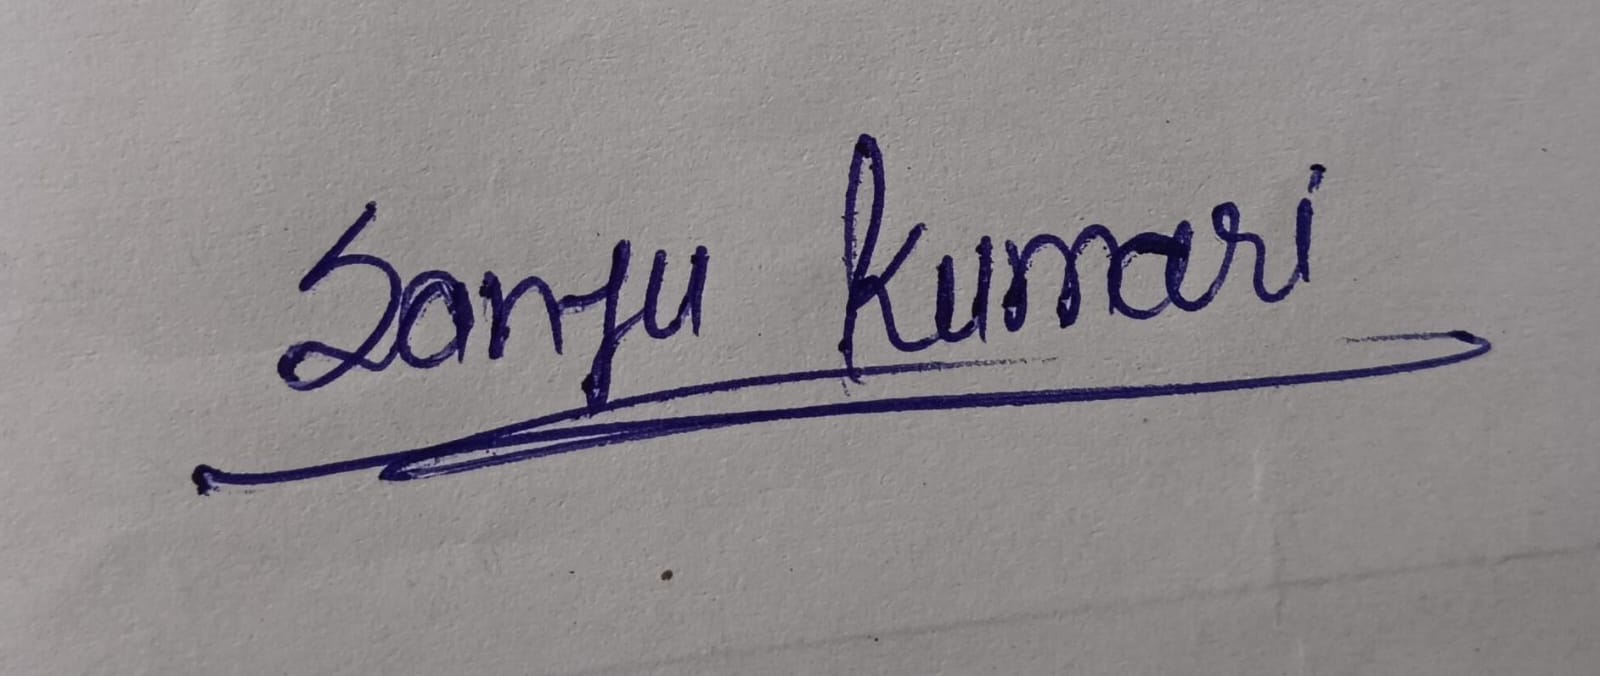 Sanju Kumari